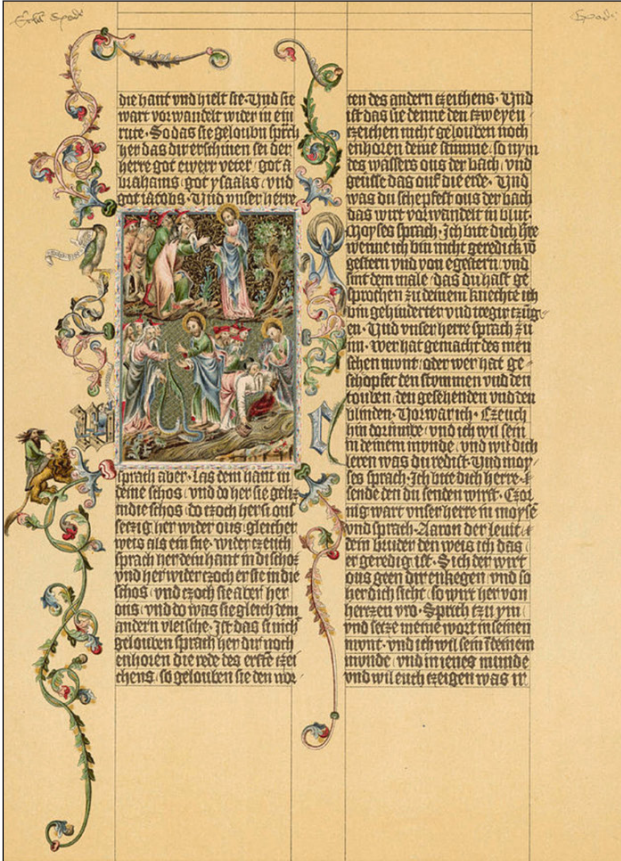 die hant vnd hielt sie · Vnd sie
wart vorwandelt wider in ein
rute · So das sie geloubn sprch
her das dir erschinen sei der
herre got ewerr veter got a
brahams got ysaaks vnd
got iacobs · Vnd vnser herre
sprach aber · Las dein hant in
deine schos vnd do her sie
in die schos do tzoch her si ous
setzig her wider ous gleicher
weis als ein sne · wider tzeuch
sprach her dein hant in di schoz
vnd her wider tzoch er sie in die
schos vnd tzoch sie aber her
ous vnd do was sie gleich dem
andern vleische · Ist das si nicht
gelouben sprach her dir noch
enhoren die rede des erste tzei
chens so gelouben sie den wor
ten des andern tzeichens · Vnd
ist das sie denne den tzweyen
tzeichen nicht gelouben noch
enhoren deine stimme so nym
des wassers ous der bach vnd
geusse das ouf die erde · Vnd
was du schepfest ous der bach
das wirt vorwandelt in blut
Moyses sprach · Ich bite dich hre
wenne ich bin nicht geredick vo
gestern vnd von egestern vnd
sint dem male das du hast ge
sprochen zu deinem knechte ich
bin gehinderter vnd tregir tzüg
en · Vnd vnser herre sprach zu
im · Wer hat gemacht des men
schen munt oder wer hat ge
schopfet den stvmmen vnd den
touben den gesehenden vnd den
blinden · Vorwar ich · Czeuch
hin dorumbe vnd ich wil sein
in deinem munde vnd wil dich
leren was du redist · Vnd moy
ses sprach · Ich bite dich herre ·
sende den du senden wirst · Czor
nig wart vnser herre in moyse
vnd sprach · Aaron der leuit
dein bruder den weis ich das
er geredig ist · Sich der wirt
ous geen dir enkegen vnd so
her dich sicht so wirt her von
herzen vro · Sprich tzu ym
vnd setze meine wort in seinen
munt · vnd ich wil sein in deinem
munde vnd in ienes munde
vnd wil euch tzeigen was ir